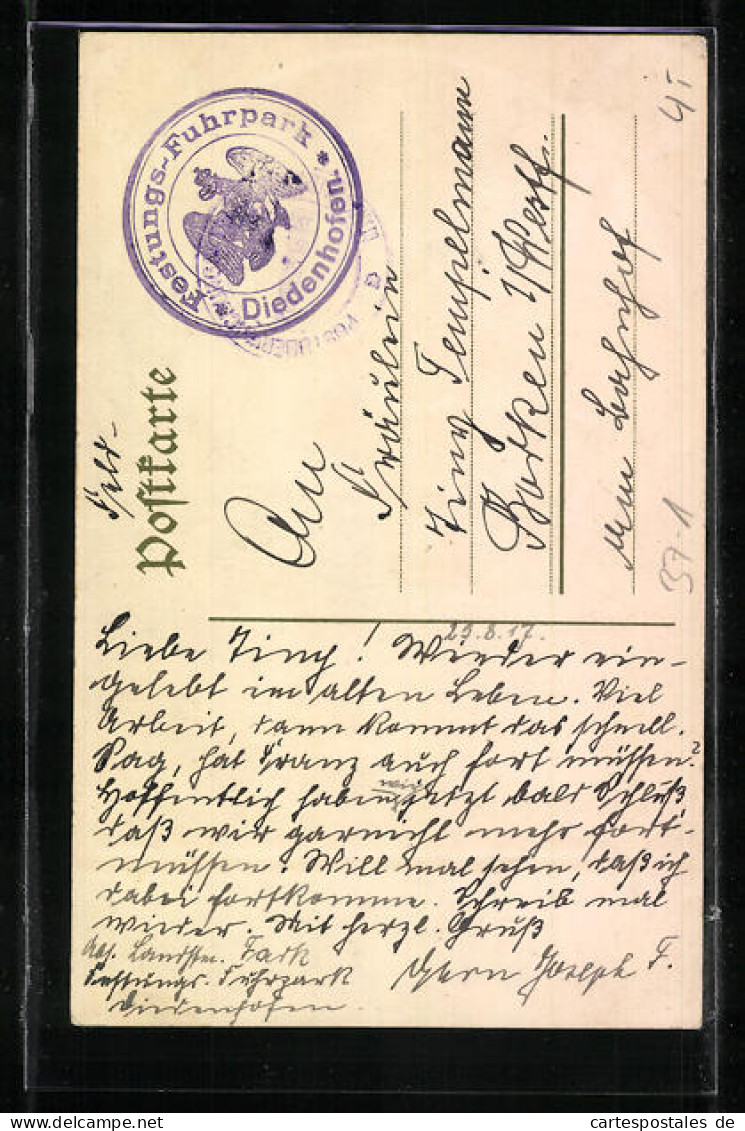 Festungs-Fuhrpark * Diedenhofen. *
Feld-
Postkarte
An
Fräulein
Tiny Tempelmann
Borken i/Westf.
am Bahnhof
41
37-1
29.8.17.
Liebe Tiny! Wieder ein-
gelebt im alten Leben. Viel
Arbeit, dann kommt das schnell.
Sag, hat Franz auch fort müssen?
Hoffentlich haben wir jetzt bald Schluß
daß wir garnicht mehr fort-
müssen. Will mal sehen, daß ich
dabei fortkomme. Schreib mal
wieder. Mit herzl. Gruß
Joseph F.
Abs. Landstm. Fark
Festungs-Fuhrpark
Diedenhofen.
cartespostales de